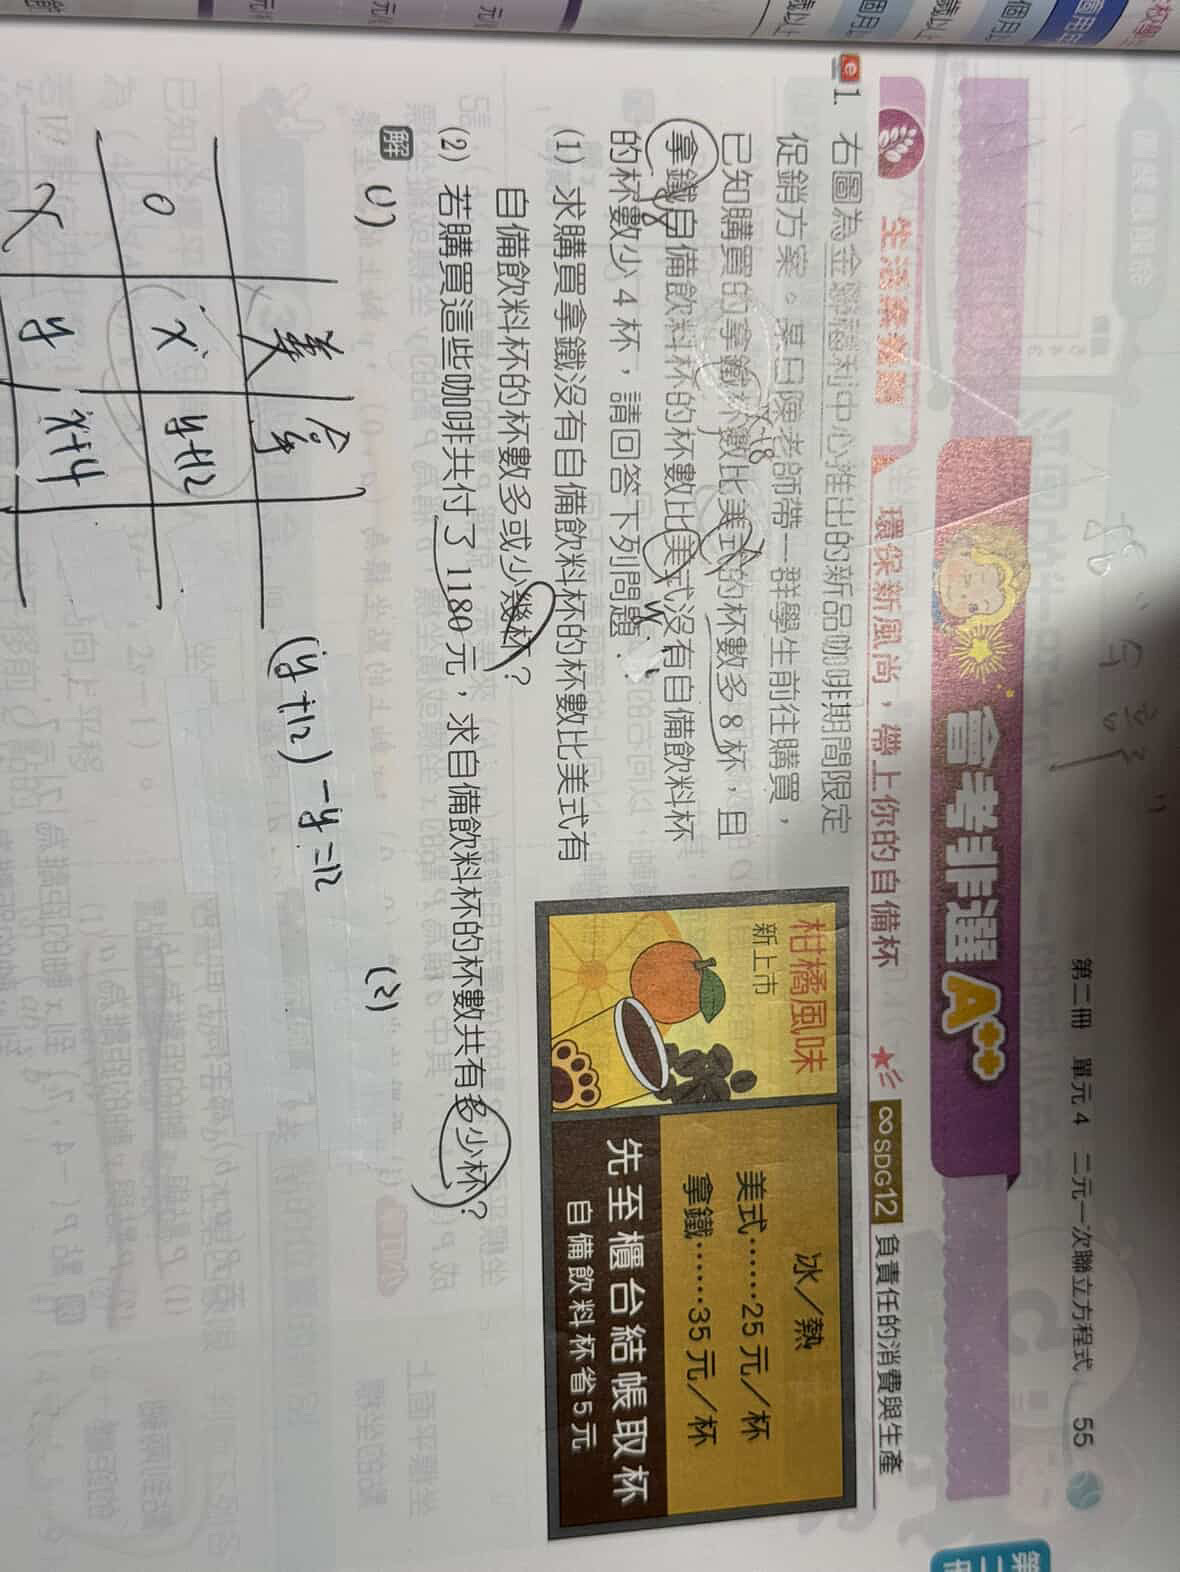 第二冊 單元4 二元一次聯立方程式 55
會考非選A++
環保新風尚,帶上你的自備杯
SDG12 負責任的消費與生產
1. 右圖為金鑽福利中心推出的新品咖啡期間限定
促銷方案。某日陳老師帶一群學生前往購買,
已知購買的拿鐵杯數比美式的杯數多8杯,且
拿鐵自備飲料杯的杯數比美式沒有自備飲料杯
的杯數少4杯,請回答下列問題:
(1) 求購買拿鐵沒有自備飲料杯的杯數比美式有
自備飲料杯的杯數多或少幾杯?
(2) 若購買這些咖啡共付了1180元,求自備飲料杯的杯數共有多少杯?
柑橘風味
新上市
冰/熱
美式……25元/杯
拿鐵……35元/杯
先至櫃台結帳取杯
自備飲料杯省5元
解
(1)
(2)
美 拿
O x y+12
X y x+4
(y+12)-y=12